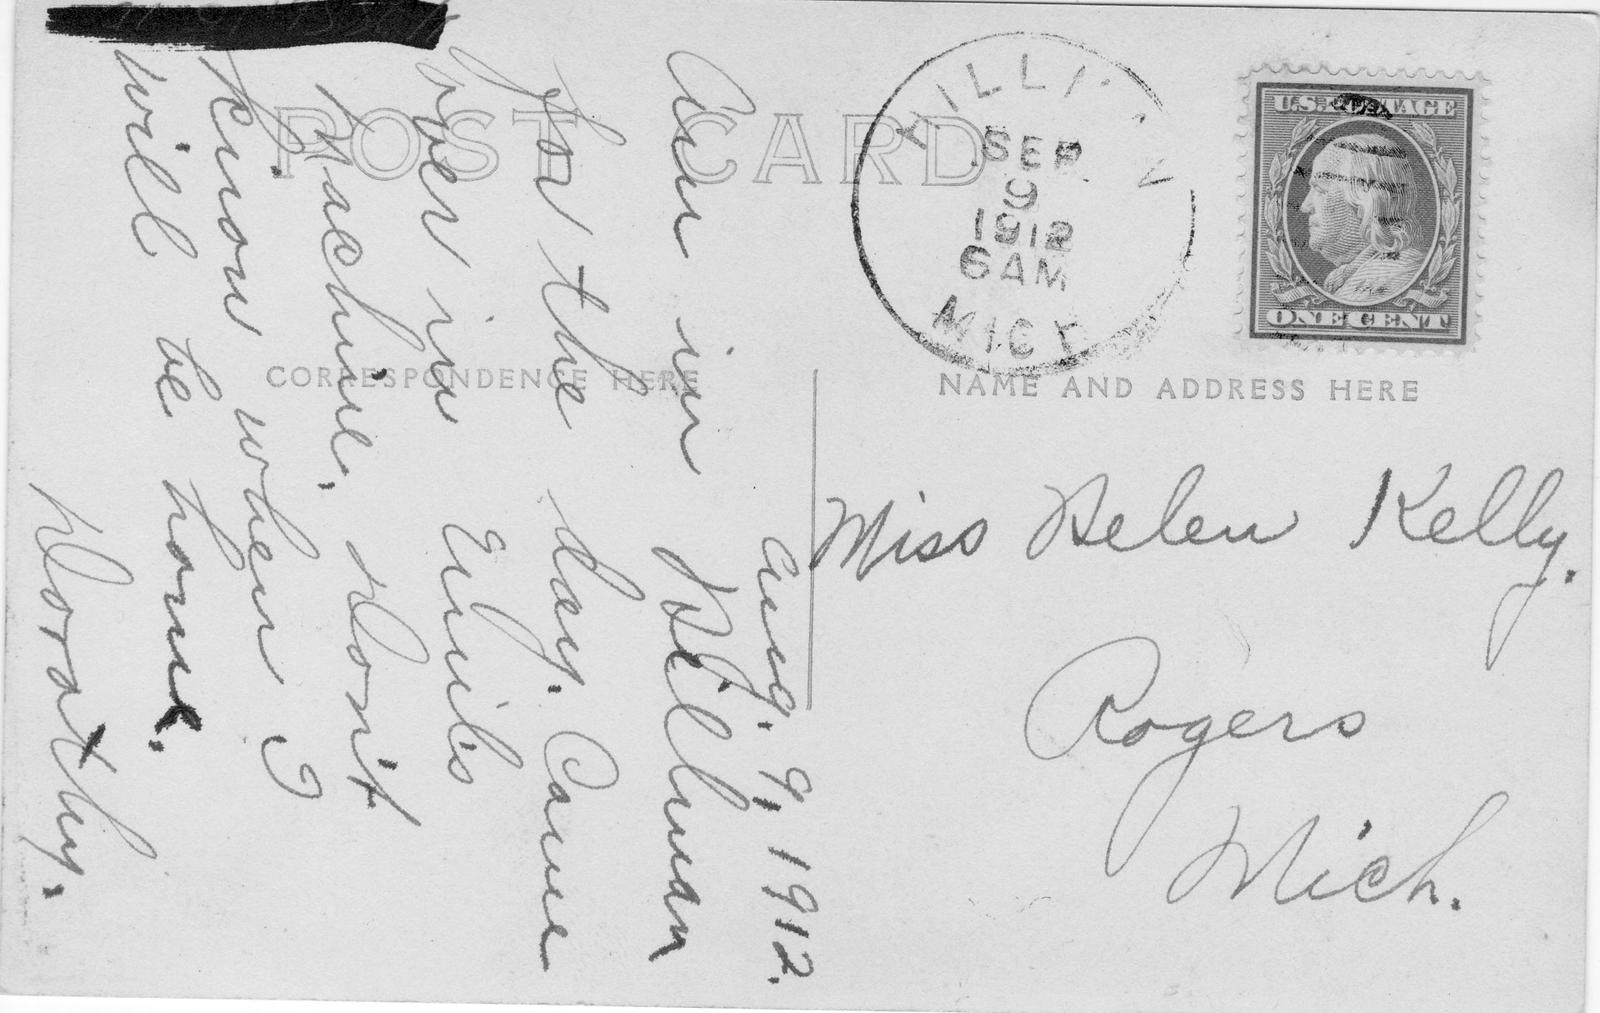 POST CARD
CORRESPONDENCE HERE
NAME AND ADDRESS HERE
SEP
9
1912
6AM
MICH
U.S. POSTAGE
ONE CENT
Aug. 9, 1912.
Am in Hillman
for the day. Came
over in Emil's
Machine. Don't
know when I
will be home.
Dorothy.
Miss Helen Kelly.
Rogers
Mich.